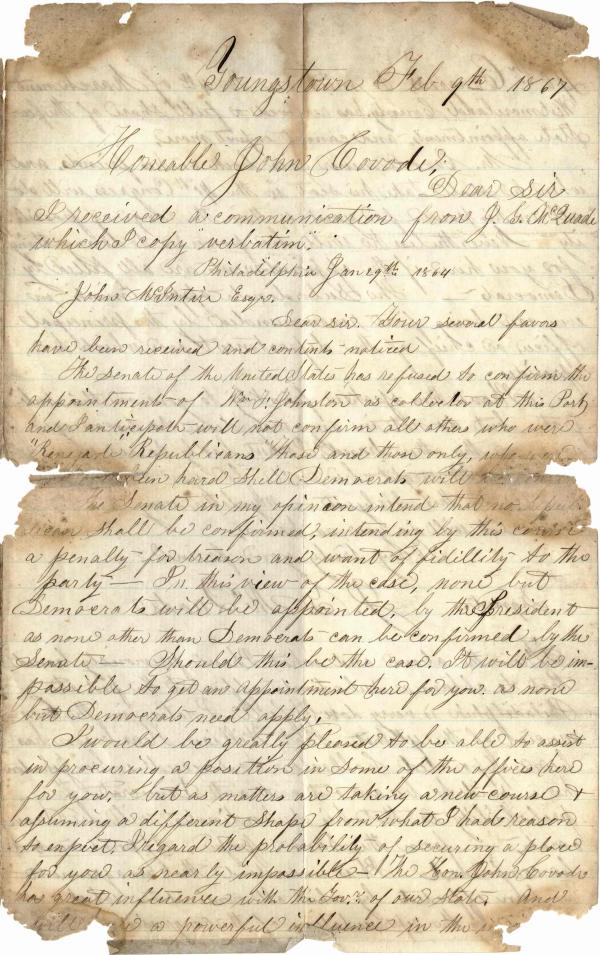 Youngstown Feb 9th 1867
Honeable John Covode,
Dear Sir
I received a communication from J. L. McQuade
which I copy "verbatim".
Philadelphia Jan 29th 1864
John McIntire Esqr.
Dear sir. Your several favors
have been received and contents noticed
The senate of the United States has refused to confirm the
appointment of Wm F. Johnston as collector at this Port,
and I anticipate will not confirm all others who were
"Renegade" Republicans "those and those only, who
been hard shell Democrats will
The Senate in my opinion intend that no
shall be confirmed, intending by this course
a penalty for treason and want of fidillity to the
party — In this view of the case, none but
Democrats will be appointed, by the President
as none other than Democrats can be confirmed by the
Senate — Should this be the case. It will be im-
possible to get an appointment here for you. as none
but Democrats need apply,
I would be greatly pleased to be able to assist
in procuring a position in some of the offices here
for you, but as matters are taking a new course &
assuming a different shape from what I had reason
to expect, I regard the probability of securing a place
for you as nearly impossible — The Hon. John Covode
has great influence with the Govr. of our State, And
a powerful influence in the